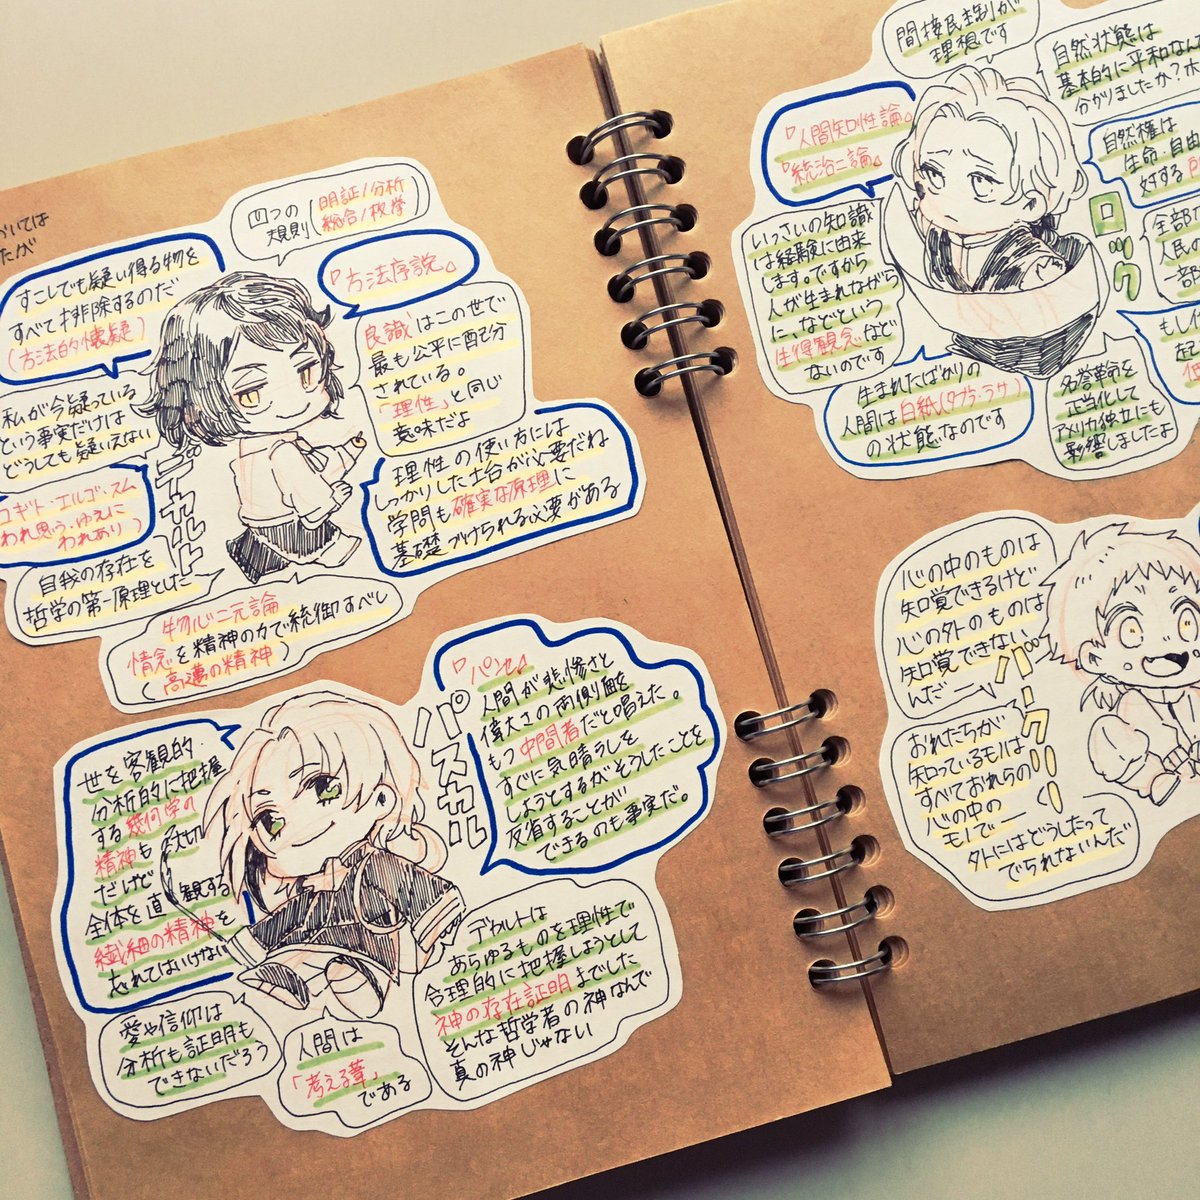 いては
たが
四つの
規則(明証/分析
総合/枚挙
『方法序説』
すこしでも疑い得る物を
すべて排除するのだ
(方法的懐疑)
良識はこの世で
最も公平に配分
されている。
「理性」と同じ
意味だよ
私が今疑っている
という事実だけは
どうしても疑いえない
デカルト
理性の使い方には
しっかりした土台が必要だね
学問も確実な原理に
基礎づけられる必要がある
コギト・エルゴ・スム
われ思う、ゆえに
われあり)
自我の存在を
哲学の第一原理とした
物心二元論
情念を精神の力で統御すべし
(高邁の精神)
『パンセ』
人間が悲惨さと
偉大さの両側面を
もつ中間者だと唱えた。
すぐに気晴らしを
しようとするがそうしたことを
反省することが
できるのも事実だ。
パスカル
世を客観的・
分析的に把握
する幾何学の
精神も大切
だけど
全体を直観する
繊細の精神を
忘れてはいけない
デカルトは
あらゆるものを理性で
合理的に把握しようとして
神の存在証明までした
そんな哲学者の神なんて
真の神じゃない
愛や信仰は
分析も証明も
できないだろう
人間は
「考える葦」
である
間接民主制が
理想です
自然状態は
基本的に平和なん
分かりましたか?ホ
『人間知性論』
『統治二論』
自然権は
生命・自由
対する所
いっさいの知識
は経験に由来
します。ですから
人が生まれながら
に、などという
生得観念など
ないのです
ロック
全部
人民の
部
もし
起
生まれたばかりの
人間は白紙(タブラ・ラサ)
の状態なのです
名誉革命を
正当化して
アメリカ独立にも
影響しましたよ
心の中のものは
知覚できるけど
心の外のものは
知覚できない
んだー
バークリー
おれたちが
知っているモノは
すべておれらの
心の中の
モノでー
外にはどうしたって
でられないんだ